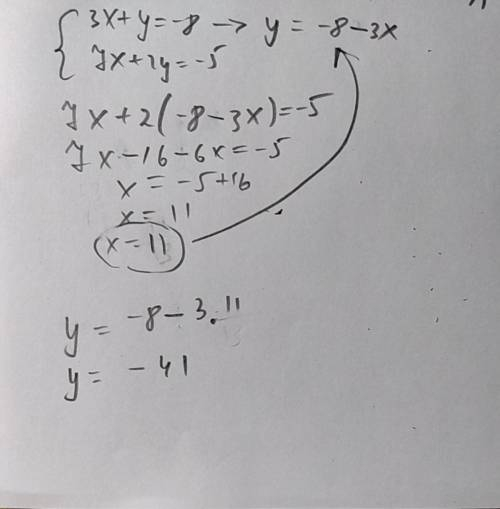 3x+y=-8 → y = -8-3x
7x+2y=-5
7x+2(-8-3x)=-5
7x-16-6x=-5
x=-5+16
x=11
x=11
y=-8-3.11
y=-41